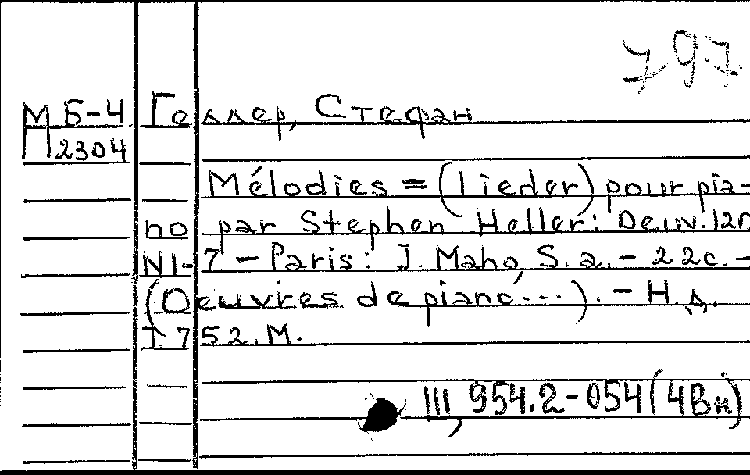 797
М Б-4 Геллер, Стефан
П 2304
Mélodies = (Lieder) pour pia-
no par Stephen Heller: Oeuv. 120
N1-7 - Paris: J. Maho, S. a. - 22c. -
(Oeuvres de piano...). - Н. д.
J. 752. M.
III, 954.2-054(4Вн)